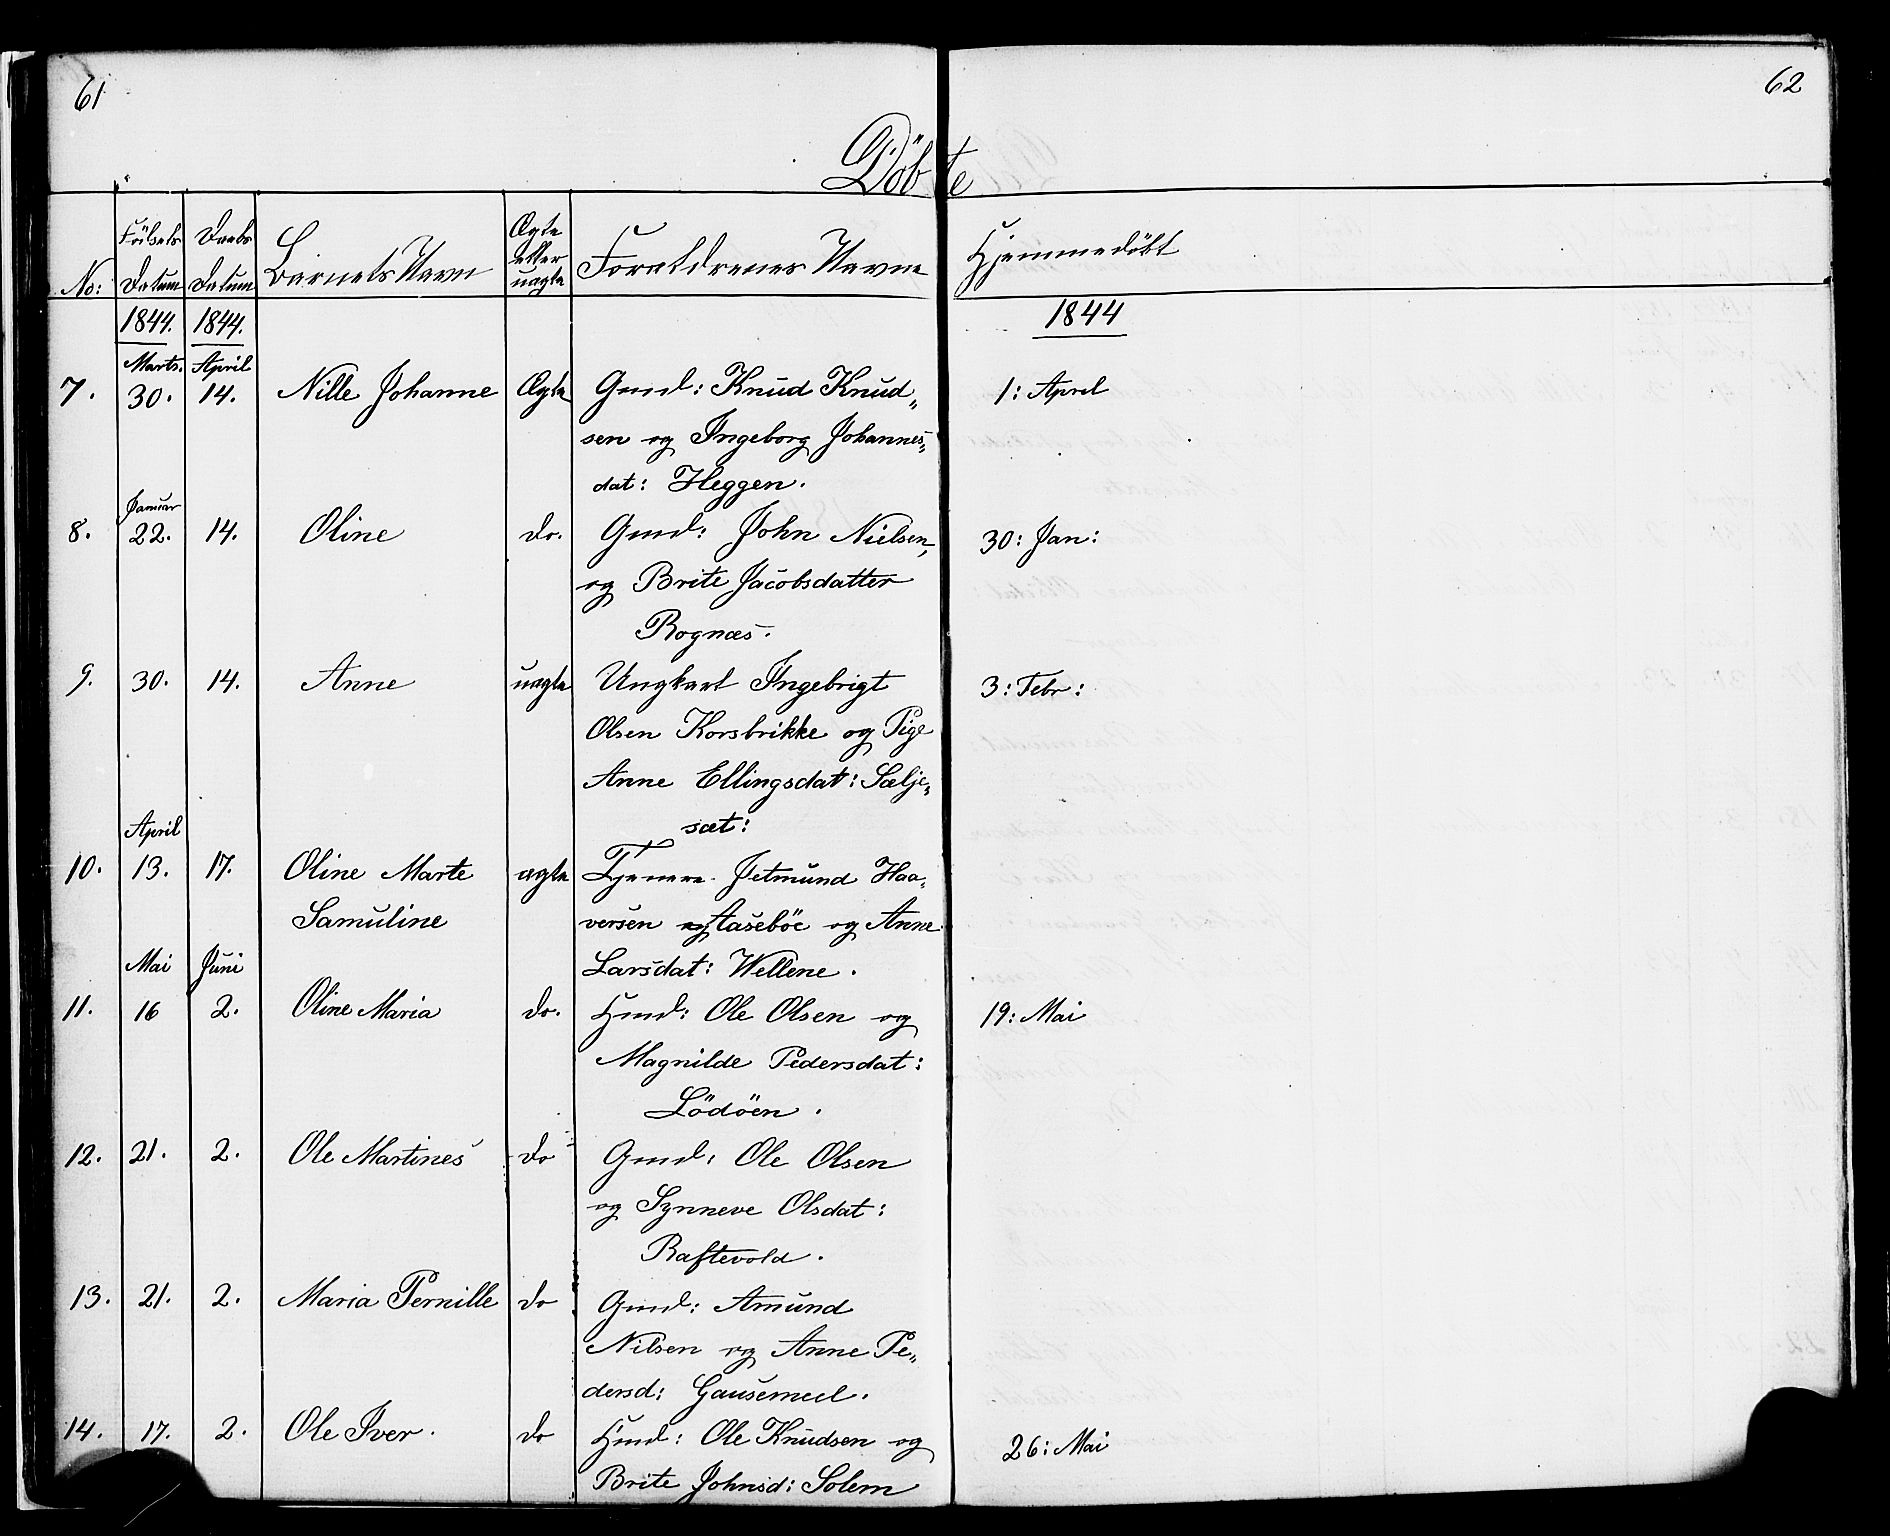 61
62
Döbte
No: Födsels Datum Daabs Datum Barnets Navn Ægte eller uægte Forældrenes Navne Hjemmedöbt
1844. 1844. 1844
Marts. April
7. 30. 14. Nille Johanne Ægte Gmd: Knud Knud„ 1: April
sen og Ingeborg Johannes„
dat: Heggen.
Januar
8. 22. 14. Oline do. Gmd: John Nielsen, 30: Jan:
og Brite Jacobsdatter
Rognæs.
9. 30. 14. Anne uægte Ungkarl Ingebrigt 3: Febr:
Olsen Korsbrikke og Pige
Anne Ellingsdat: Sælje„
sæt:
April
10. 13. 17. Oline Marte ægte Tjenere. Jetmund Haa„
Samuline versen og Aaseböe og Anne
Larsdat: Wellene.
Mai Juni
11. 16 2. Oline Maria do. Hmd: Ole Olsen og 19: Mai
Magnilde Pedersdat:
Lödöen.
12. 21. 2. Ole Martines do Gmd: Ole Olsen
og Synneve Olsdat:
Raftevold.
13. 21. 2. Maria Pernille do Gmd: Amund
Nilsen og Anne Pe„
dersd: Gausemeel.
14. 17. 2. Ole Iver. do Hmd: Ole Knudsen og 26: Mai
Brite Johnsd: Solem